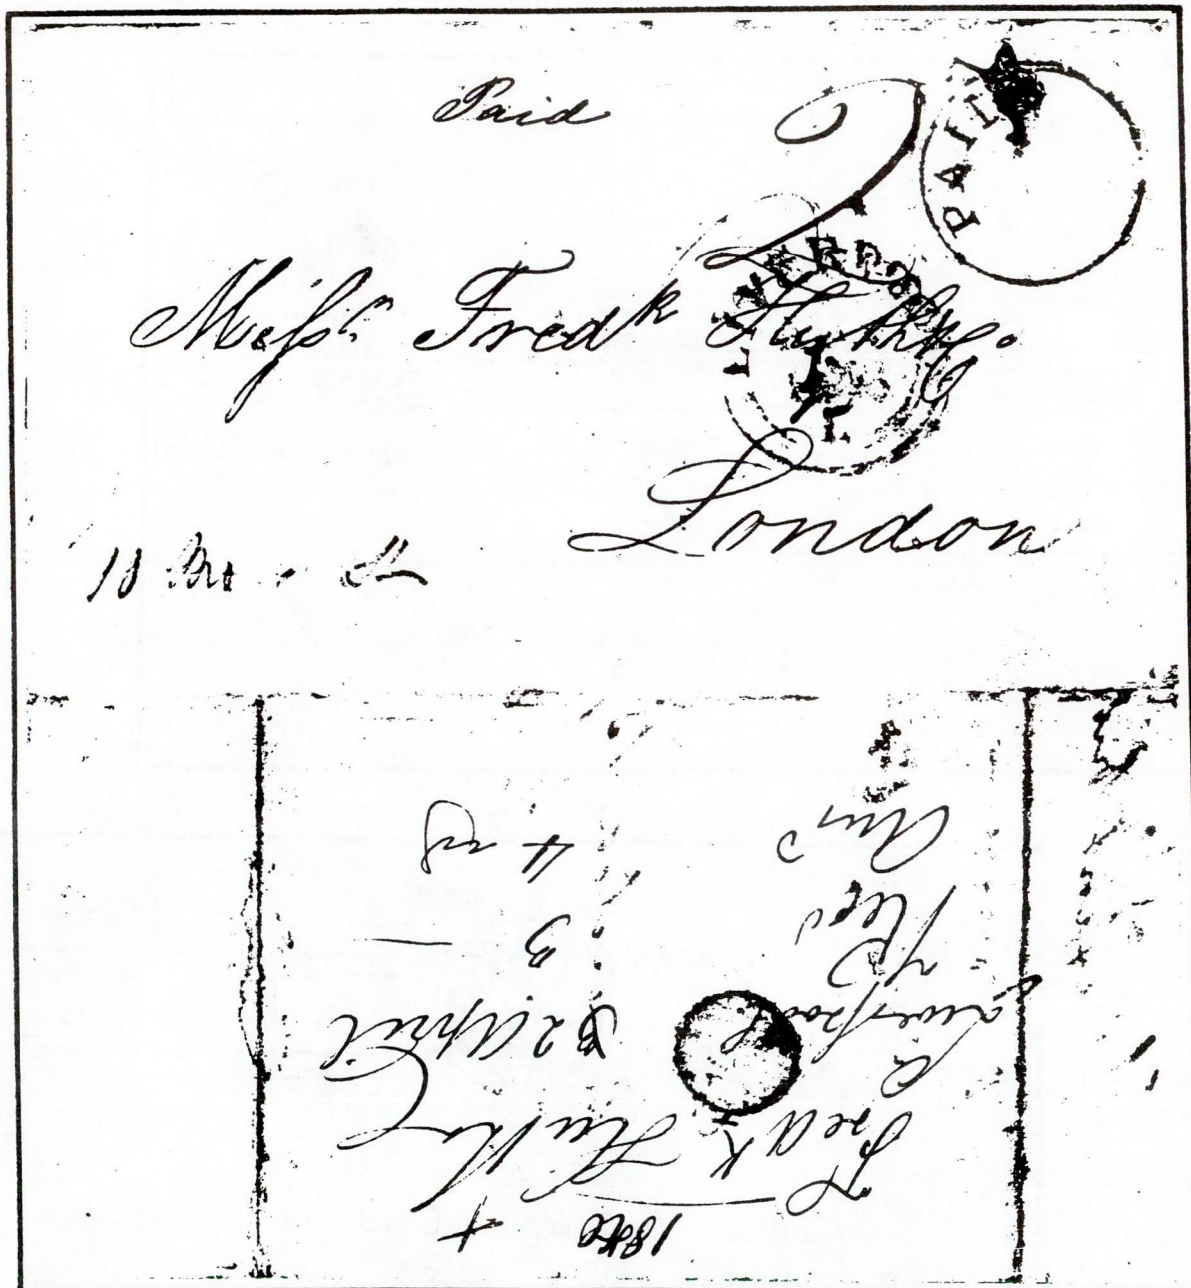 Paid
PAID
2
LIVERPOOL
Messrs Fredk Huth & Co.
London
1840
Fredk Huth &Co
Liverpool 2 April
Recd 3
Ansd 4